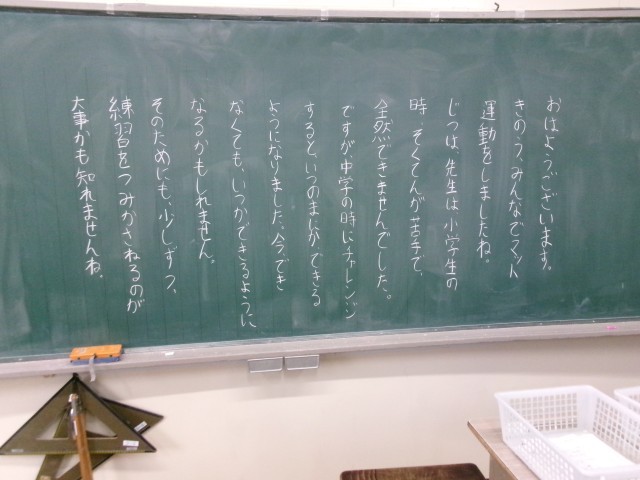 おはようございます。
きのう、みんなでマット
運動をしましたね。
じつは、先生は、小学生の
時、そくてんが苦手で、
全然できませんでした。
ですが、中学の時にチャレンジ
すると、いつのまにか できる
ようになりました。今でき
なくても、いつかできるように
なるかもしれません。
そのためにも、少しずつ、
練習をつみかさねるのが
大事かも知れませんね。